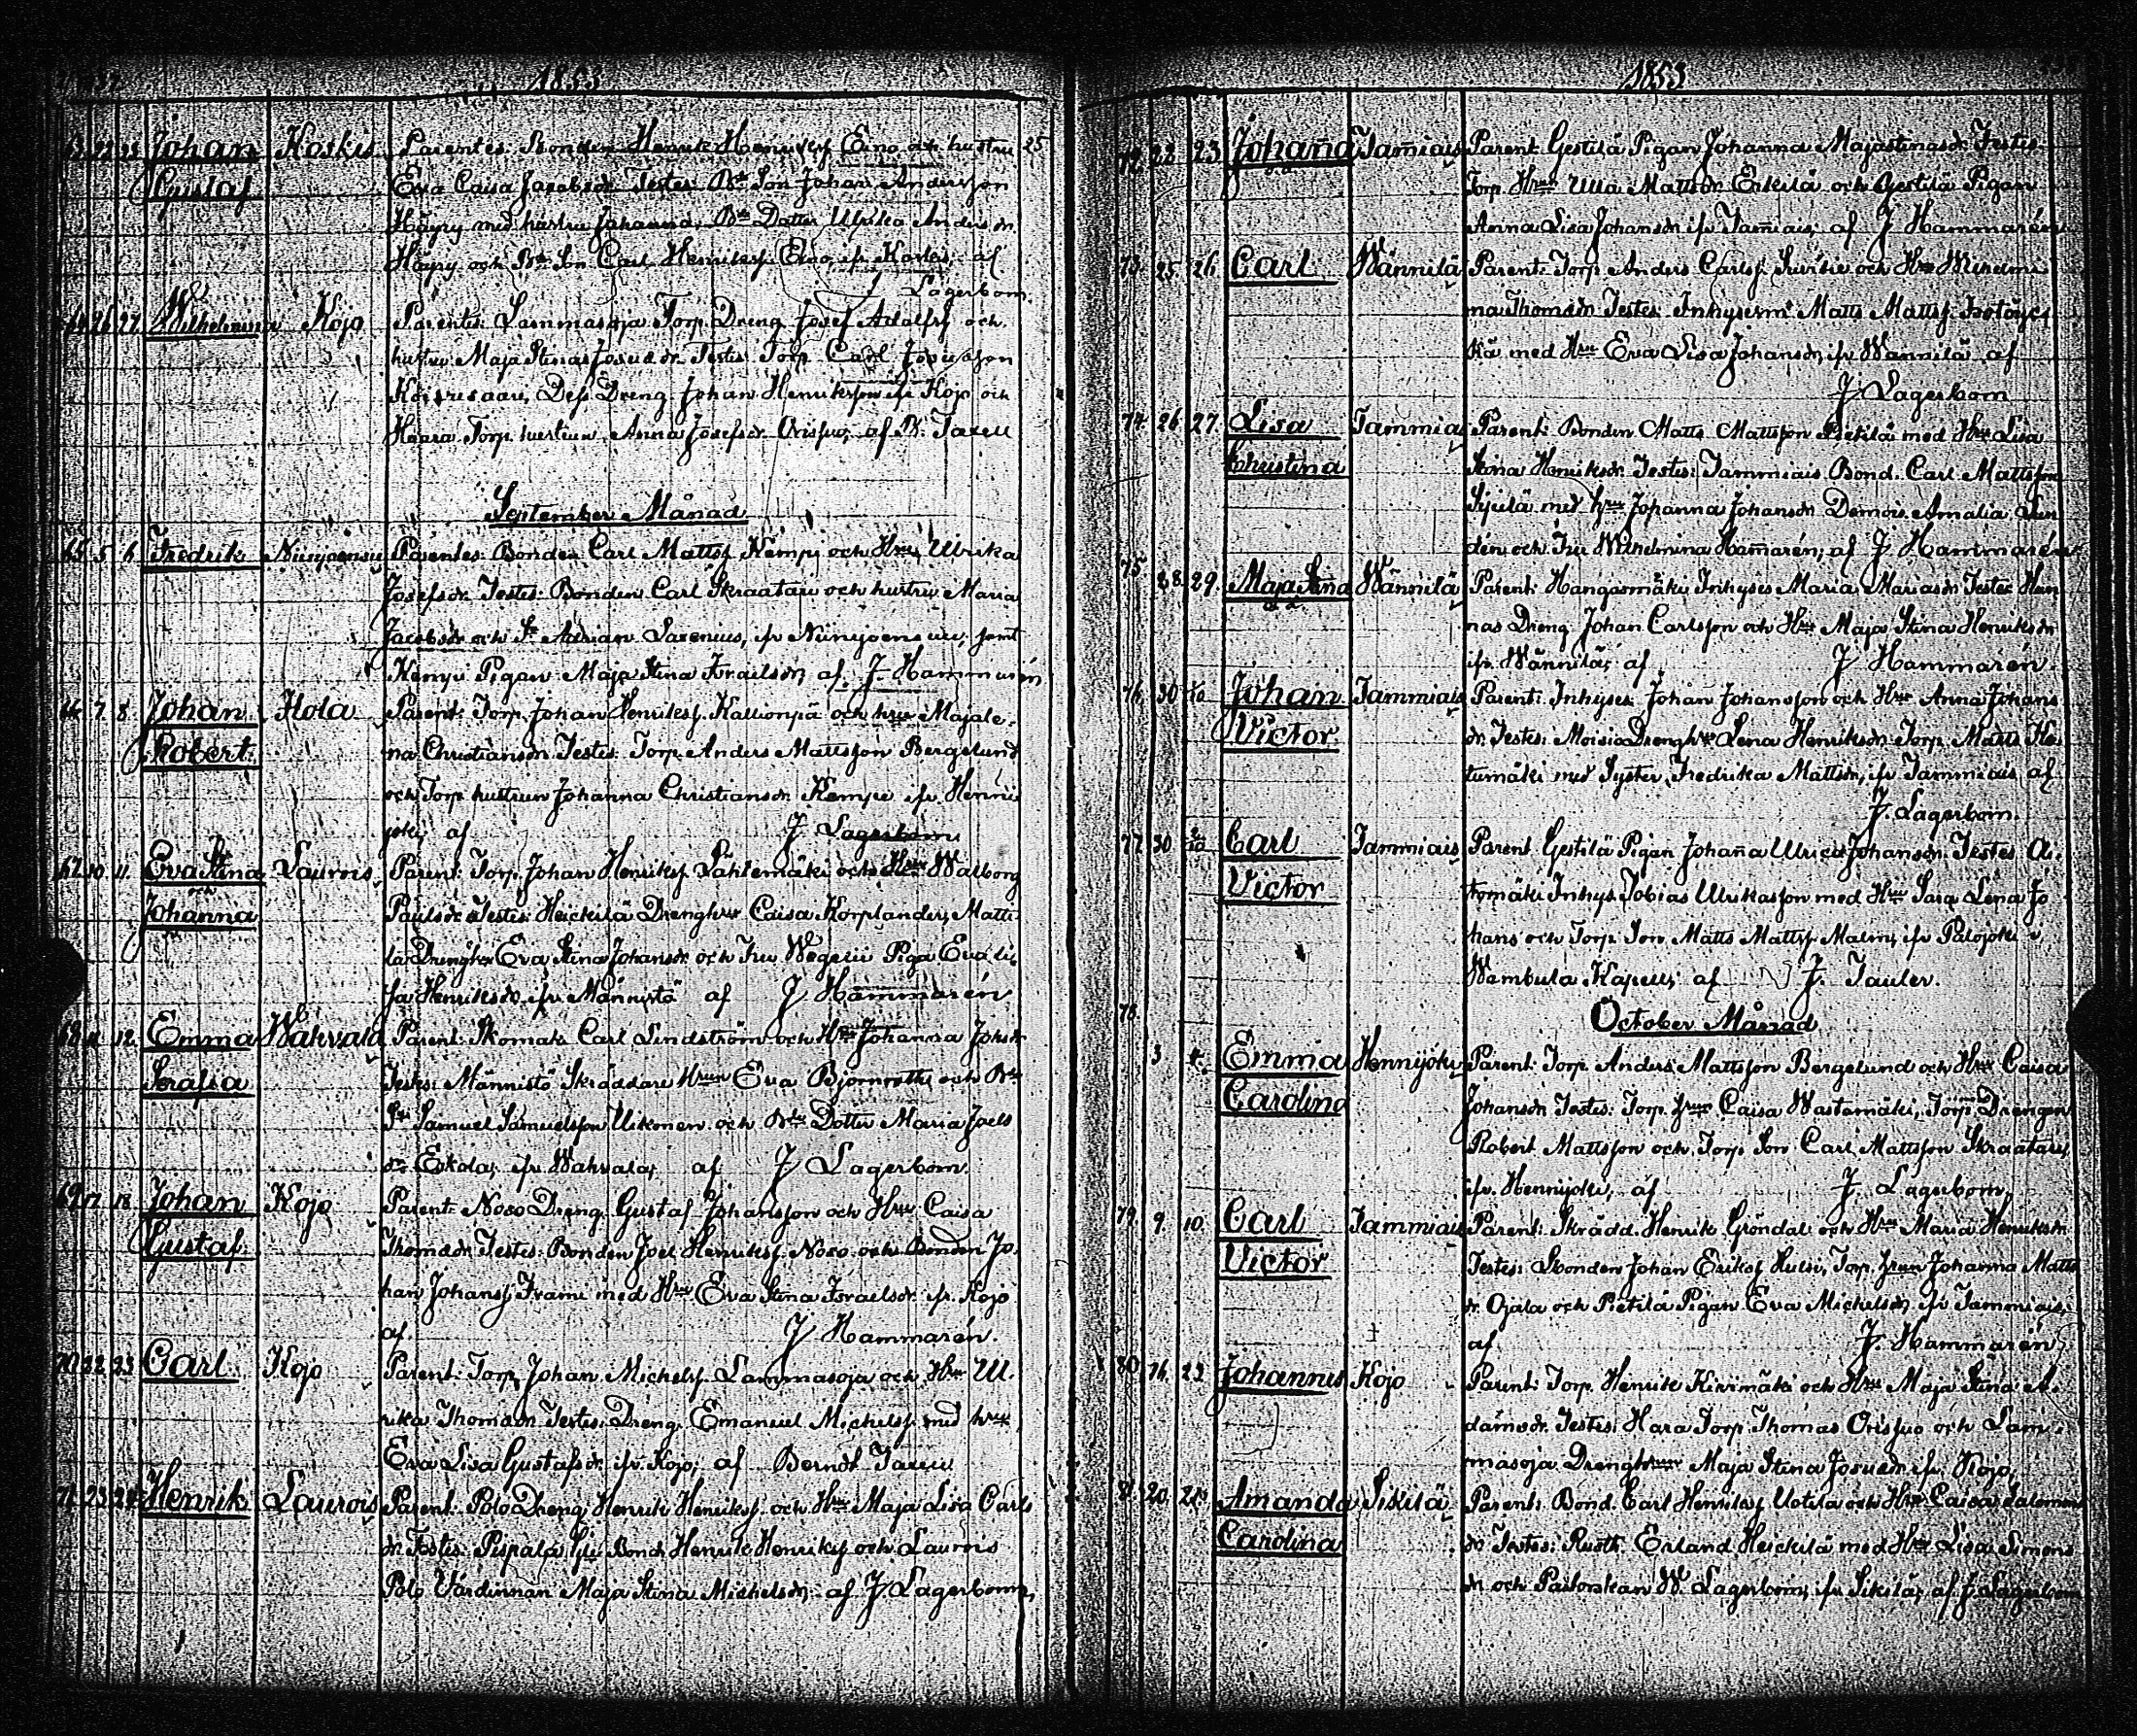 1853
63. 22. 23. Johan Koskis Parentes: Bonden Henrik Henriksf Eino och hustru 25
Gustaf Eva Caisa Jacobsdr Testes: Bde Son Johan Andersson
Häyry med hustru Johanna, Bde Dotter Ulrika Andersdr
Häyry och Bde Son Carl Henriksf. Eino, ifr Koskis, af
J Lagerbom.
64. 26. 27. Wilhelmina Kojo Parentes: Lammasoja Torp. Dreng Josef Adolfsf och
hustru Maja Stina Josuadr. Testes Torp. Carl Josuasson
Koivusaari, Dess Dreng Johan Henriksson ifr Kojo och
Haara Torp. hustrun Anna Josefsdr Orispuo, af B. Taxell
September Månad
65. 5. 6. Fredrik Niinijoensuu Parentes: Bonden Carl Mattsf Kempi och Hru Ulrika
Josefsdr. Testes: Bonden Carl Skraatari och hustru Maria
Jacobsdr och Sr Adrian Saxenius, ifr Niinijoensuu, samt
Kenyi Pigan Maja Stina Israelsdr, af J. Hammarén
66. 7. 8. Johan Hola Parent: Torp. Johan Henriksf. Kallionpä och hru Majale-
Robert na Christiansdr Testes: Torp. Anders Mattsson Bergelund
och Torp. hustrun Johanna Christiansdr Kempe ifr. Henni
joki, af J Lagerbom.
67. 10. 11. Eva Stina Laurois Parent: Torp. Johan Henriksf. Lähtemäki och Hru Walborg
och
Johanna Paulsdr Testes: Heickilä Drenghru Caisa Korplander, Matti
la Drenghru Eva Stina Johansdr och Fru Wegelii Piga Eva Li-
sa Henriksdr ifr Männistö af J Hammarén
68. 11. 12. Emma Wahvala Parent: Skomak. Carl Lindström och Hru Johanna Johsdr
Serafia Testes: Männistö Skräddare Hrun Eva Björnroth och Bde
Sn Samuel Samuelsson Uikman och Bde Dotter Maria Joels
dr Eskola, ifr Wahvala, af J Lagerbom.
69. 17. 18. Johan Kojo Parent: Noso Dreng. Gustaf Johansson och Hru Caisa
Gustaf Thomasdr Testes: Bonden Joel Henriksf. Noso och Bonden Jo-
han Johansf Frami med Hru Eva Stina Israelsdr ifr. Kojo
af. J Hammarén.
70. 22. 23. Carl Kojo Parent: Torp. Johan Michelsf. Lammasoja och Hru Ul-
rika Thomasdr Testes: Dreng. Emanuel Michelsf. med hru
Eva Lisa Gustafsdr ifr. Kojo, af Berndt Taxell
71. 23. 24. Henrik Laurois Parent: Polo Dreng Henrik Henriksf. och Hru Maja Lisa Carls
dr Testes: Pispala Bond Henrik Henriksf och Laurois
Polo Värdinnan Maja Stina Michelsdr, af J. Lagerbom,
1853
72. 22. 23. Johanna Tammiais Parent: Gestilä Pigan Johanna Majastinasdr Testes
Torp. Hrun Ulla Mattsdr Erkilä och Gestilä Pigan
Anna Lisa Johansdr ifr Tammiais, af J Hammarén
73. 25. 26. Carl Wännilä Parent: Torp. Anders Carlsf. Survie och Hru Wilhelmi
na Thomsdr Testes: Inhysesm. Matts Mattsf. Isotöyck
kä med Hru Eva Lisa Johansdr ifr Wännilä af
J Lagerbom
74. 26. 27. Lisa Tammiais Parent: Bonden Matts Mattsson Pietilä med Hru Lisa
Christina Stina Henriksdr. Testes: Tammiais Bond. Carl Mattsson
med hru Johanna Johansdr Demois. Amalia
dén och Fru Wilhelmina Hammarén; af J. Hammarén
75. 28. 29. Maja Stina Wännilä Parent: Hangasmäki Inhyses Maria Mariasdr Testes Hun
nas Dreng Johan Carlsson och Hru Maja Stina Henriksdr
ifr. Wännilä, af J Hammarén
76. 30 2/10 Johan Tammiais Parent: Inhyses Johan Johansson och Hru Anna Johans
Victor dr. Testes: Moisio Drenghru Lena Henriksdr Torp. Matts Ke-
tumäki med Syster Fredrika Mattsdr, ifr Tammiais af
J. Lagerbom.
77. 30 2/10 Carl Tammiais Parent Gestilä Pigan Johanna Ulrica Johansdr. Testes A-
Victor tomäki Inhys Tobias Ulrikasson med Hru Sara Lena Jo
hans och Torp. Son Matts Mattsf. Malm, ifr Palojoki i
Wambula Kapell, af J. Tauler.
78. October Månad
3 4. Emma Hennijoki Parent: Torp. Anders Mattsson Bergelund och Hru Caisa
Carolina Johansdr Testes: Torp. hrun Caisa Wastamäki, Torp. Drengen
Robert Mattsson och Torp. Son Carl Mattsson Skraatari,
ifr. Hennijoki, af J. Lagerbom,
79. 9. 10. Carl Tammiais Parent: Skrädd. Henrik Gröndal och Hru Maria Henriksdr
Victor Testes: Bonden Johan Eriksf Hulsi, Torp. hrun Johanna Matts
dr. Ojala och Pietilä Pigan Eva Michelsdr, ifr Tammiais,
af J. Hammarén
80. 16. 23. Johannes Kojo Parent: Torp. Henrik Kivimäki och Hru Maja Stina A-
damsdr. Testes: Hara Torp. Thomas Orispuo och Lam-
masoja Drenghrun Maja Stina Josuadr ifr. Kojo,
81. 20. 21. Amanda Sikilä Parent: Bond. Carl Henriksf Uotila och Hru Caisa Salomons
Carolina dr Testes: Rusth. Erland Heickilä med Hru Lisa Simons
dr och Pastorskan W. Lagerbom, ifr Sikilä, af J. Lagerbom